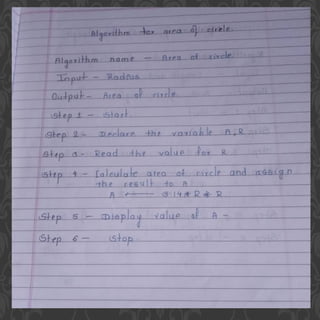 Algorithm for area of circle
Algorithm name - Area of circle
Input - Radius
Output - Area of circle
Step 1 - Start
Step 2 - Declare the variable A, R
Step 3 - Read the value for R
Step 4 - Calculate area of circle and assign
the result to A
A ← 3.14 * R * R
Step 5 - Display value of A -
Step 6 - Stop